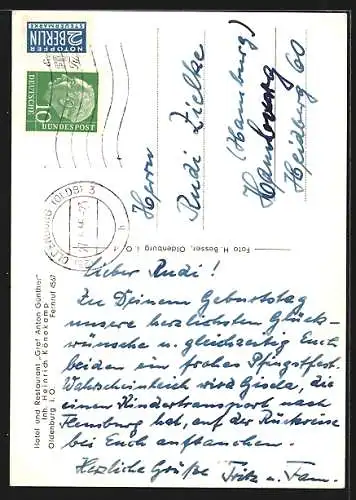 NOTOPFER
2 BERLIN
STEUERMARKE
10
DEUTSCHE
BUNDESPOST
OLDENBURG (OLDB) 3
Herrn
Rudi Zielke
(Hamburg)
Hamburg
Heidberg 60
Foto H. Besser, Oldenburg i. O.
Hotel und Restaurant „Graf Anton Günther"
Inh. Heinrich Könekamp
Oldenburg i. O. Fernruf 4567
Lieber Rudi!
Zu Deinem Geburtstag
unsere herzlichsten Glück-
wünsche u. gleichzeitig Euch
beiden ein frohes Pfingstfest.
Wahrscheinlich wird Gisela, die
einen Kindertransport nach
Flensburg hat, auf der Rückreise
bei Euch auftauchen.
Herzliche Grüße Fritz u. Fam.